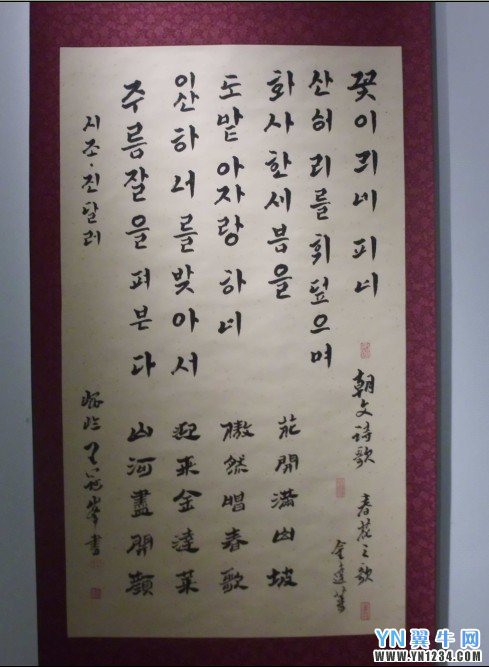 꽃이 픠네 피네
산허리를 휘덮으며
화사한 세봄을
도맡아 자랑하네
이산하 너를 맞아서
주름잘을 펴본다
시조·진달래
朝文詩歌 春花之歌
金達莱
花開滿山坡
傲然唱春歌
迎来金達莱
山河盡開顔
峯書
YN翼牛网
WWW.YN1234.COM